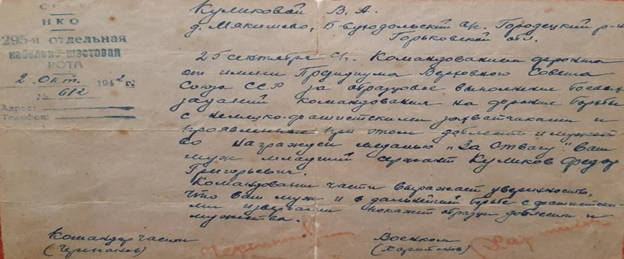 НКО
295-я отдельная
кабельно-шестовая
РОТА
2 окт. 1942 г.
№ 612
Адрес:
Телефон:
Куликовой В. А.
д. Мякишево, с/с. Городецкий р-н
Горьковской обл.
25 сентября с/г. Командованием фронта
от имени Президиума Верховного Совета
Союза ССР за образцовое выполнение боевых
заданий командования на фронте борьбы
с немецко-фашистскими захватчиками и
проявленные при этом доблесть и мужест
во награжден медалью "За Отвагу" Ваш
муж младший сержант Куликов Федор
Григорьевич.
Командование части выражает уверенность,
что ваш муж и в дальнейшей борьбе с фашистски-
ми извергами покажет образцы доблести и
мужества.
Командир части
Военком